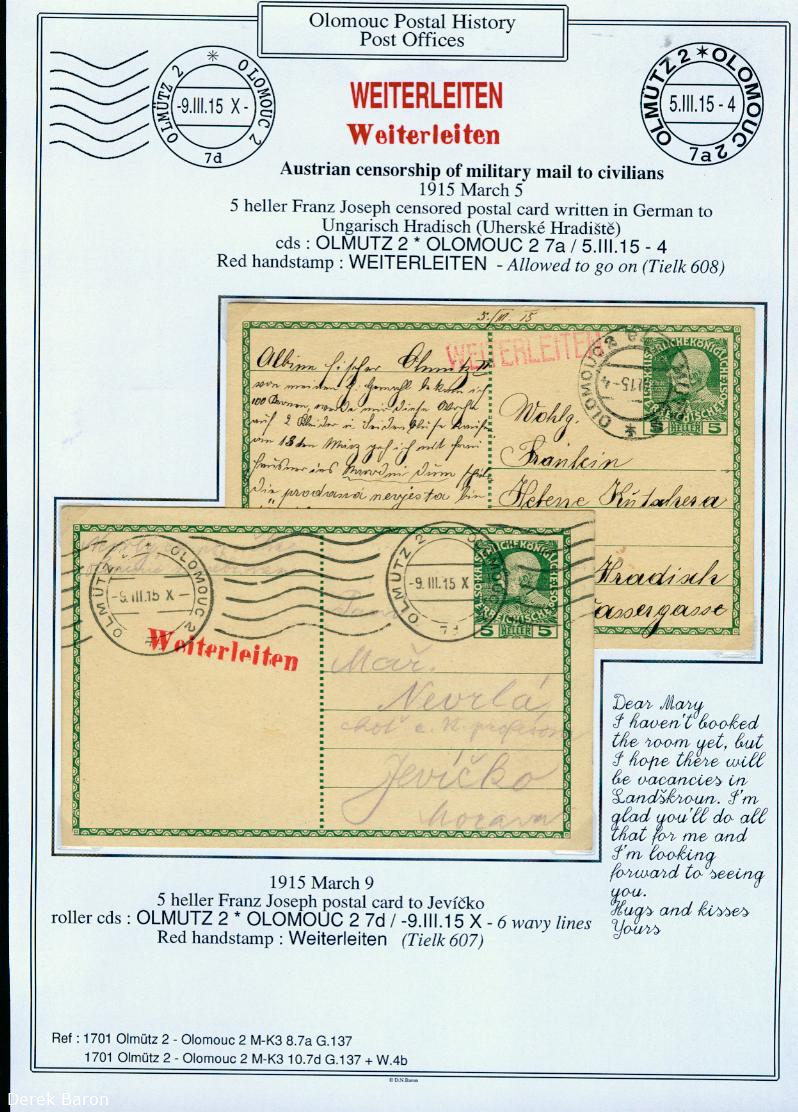 Olomouc Postal History
Post Offices
OLMÜTZ 2 * OLOMOUC 2
-9.III.15 X -
7d
WEITERLEITEN
Weiterleiten
OLMÜTZ 2 * OLOMOUC 2
5.III.15 - 4
7a
Austrian censorship of military mail to civilians
1915 March 5
5 heller Franz Joseph censored postal card written in German to
Ungarisch Hradisch (Uherské Hradiště)
cds : OLMUTZ 2 * OLOMOUC 2 7a / 5.III.15 - 4
Red handstamp : WEITERLEITEN - Allowed to go on (Tielk 608)
5./III. 15
WEITERLEITEN
Albine Fischer Olmütz
100 Kronen, werde mir diese Woche
am 18 den März geh ich mit Frau
die prodaná nevjesta
OLOMOUC 2
15-4
5 HELLER 5
Wohlg.
Fräulein
Helene Kutschera
Hradisch
assergasse
OLMÜTZ 2 OLOMOUC 2
-9.III.15 X -
OLMÜTZ 2
-9.III.15 X
5 HELLER 5
Weiterleiten
Mař.
Nevrlá
Jevíčko
Morava
Dear Mary
I haven't booked
the room yet, but
I hope there will
be vacancies in
Landškroun. I'm
glad you'll do all
that for me and
I'm looking
forward to seeing
you.
Hugs and kisses
Yours
1915 March 9
5 heller Franz Joseph postal card to Jevíčko
roller cds : OLMUTZ 2 * OLOMOUC 2 7d / -9.III.15 X - 6 wavy lines
Red handstamp : Weiterleiten (Tielk 607)
Ref : 1701 Olmütz 2 - Olomouc 2 M-K3 8.7a G.137
1701 Olmütz 2 - Olomouc 2 M-K3 10.7d G.137 + W.4b
© D.N.Baron
Derek Baron